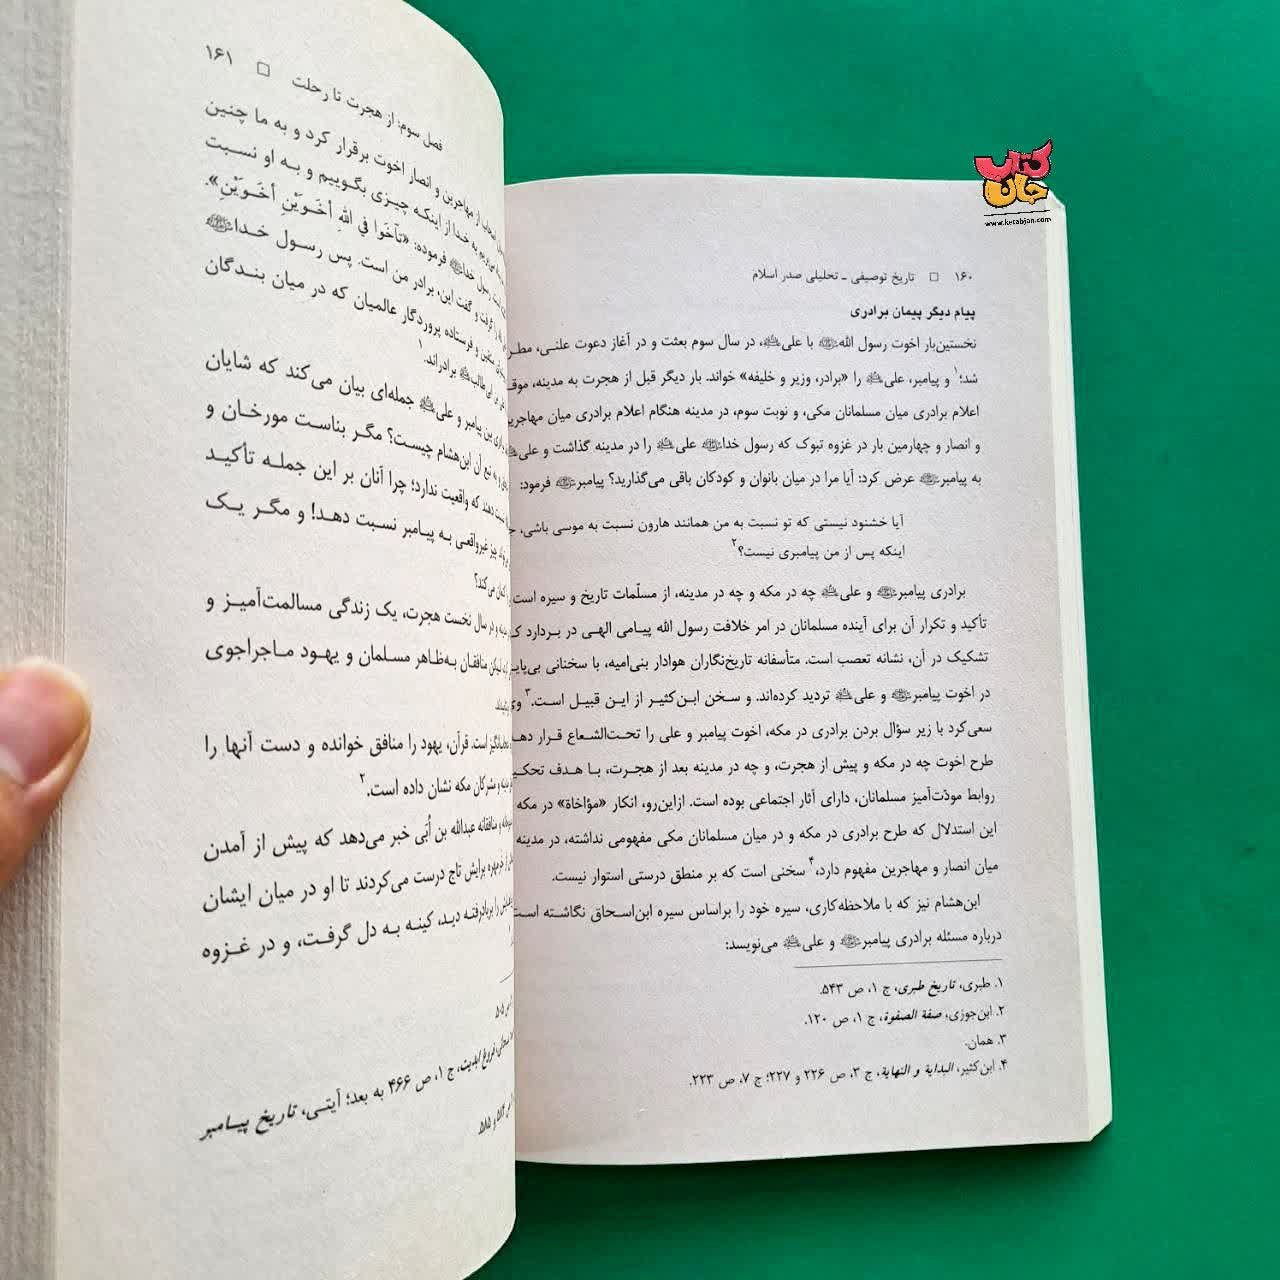 کتاب
جان
www.ketabjan.com
۱۶۰ □ تاریخ توصیفی ـ تحلیلی صدر اسلام
پیام دیگر پیمان برادری
نخستین‌بار اخوت رسول اللهﷺ با علی، در سال سوم بعثت و در آغاز دعوت علنی، مطر
شد؛۱ و پیامبر، علی را «برادر، وزیر و خلیفه» خواند. بار دیگر قبل از هجرت به مدینه، موقـ
اعلام برادری میان مسلمانان مکی، و نوبت سوم، در مدینه هنگام اعلام برادری میان مهاجرین
و انصار و چهارمین بار در غزوه تبوک که رسول خداﷺ علی را در مدینه گذاشت و علی
به پیامبرﷺ عرض کرد: آیا مرا در میان بانوان و کودکان باقی می‌گذارید؟ پیامبرﷺ فرمود:
آیا خشنود نیستی که تو نسبت به من همانند هارون نسبت به موسی باشی، جـ
اینکه پس از من پیامبری نیست؟۲
برادری پیامبرﷺ و علی چه در مکه و چه در مدینه، از مسلّمات تاریخ و سیره است
تأکید و تکرار آن برای آینده مسلمانان در امر خلافت رسول الله پیامی الهی در بردارد کـ
تشکیک در آن، نشانه تعصب است. متأسفانه تاریخ‌نگاران هوادار بنی‌امیه، با سخنانی بی‌پایـ
در اخوت پیامبرﷺ و علی تردید کرده‌اند. و سخن ابن‌کثیر از این قبیل است.۳ وی
سعی‌کرد با زیر سؤال بردن برادری در مکه، اخوت پیامبر و علی را تحت‌الشعاع قرار دهد
طرح اخوت چه در مکه و پیش از هجرت، و چه در مدینه بعد از هجرت، با هدف تحکیـ
روابط مودّت‌آمیز مسلمانان، دارای آثار اجتماعی بوده است. ازاین‌رو، انکار «مؤاخاة» در مکه
این استدلال که طرح برادری در مکه و در میان مسلمانان مکی مفهومی نداشته، در مدینه
میان انصار و مهاجرین مفهوم دارد،۴ سخنی است که بر منطق درستی استوار نیست.
ابن‌هشام نیز که با ملاحظه‌کاری، سیره خود را براساس سیره ابن‌اسحاق نگاشته است
درباره مسئله برادری پیامبرﷺ و علی می‌نویسد:
۱. طبری، تاریخ طبری، ج ۱، ص ۵۴۳.
۲. ابن‌جوزی، صفة الصفوة، ج ۱، ص ۱۲۰.
۳. همان.
۴. ابن‌کثیر، البدایة و النهایة، ج ۳، ص ۲۲۶ و ۲۲۷؛ ج ۷، ص ۲۲۳.
فصل سوم: از هجرت تا رحلت □ ۱۶۱
از مهاجرین و انصار اخوت برقرار کرد و به ما چنین
به خدا از اینکه چیزی بگوییم و به او نسبت
رسول خداﷺ فرموده: «تآخَوا في اللهِ أخَوَیْنِ أخَوَیْنِ».
را گرفت و گفت این، برادر من است. پس رسول خداﷺ
متقین و فرستاده پروردگار عالمیان که در میان بندگان
ابی طالب برادراند.۱
بین پیامبر و علی جمله‌ای بیان می‌کند که شایان
و به تبع آن ابن‌هشام چیست؟ مگر بناست مورخان و
دهند که واقعیت ندارد؛ چرا آنان بر این جمله تأکید
چیز غیرواقعی به پیامبر نسبت دهد! و مگر یک
می‌کند؟
و در سال نخست هجرت، یک زندگی مسالمت‌آمیز و
لیکن منافقان به‌ظاهر مسلمان و یهود ماجراجوی
است. قرآن، یهود را منافق خوانده و دست آنها را
و مشرکان مکه نشان داده است.۲
و منافقانه عبدالله بن أُبَی خبر می‌دهد که پیش از آمدن
از خرمهره برایش تاج درست می‌کردند تا او در میان ایشان
را بربادرفته دید، کینه به دل گرفت، و در غزوه
ص ۵۰۵
سبحانی، فروغ ابدیت، ج ۱، ص ۴۶۶ به بعد؛ آیتی، تاریخ پیامبر
ص ۵۸۴ و ۵۸۵.